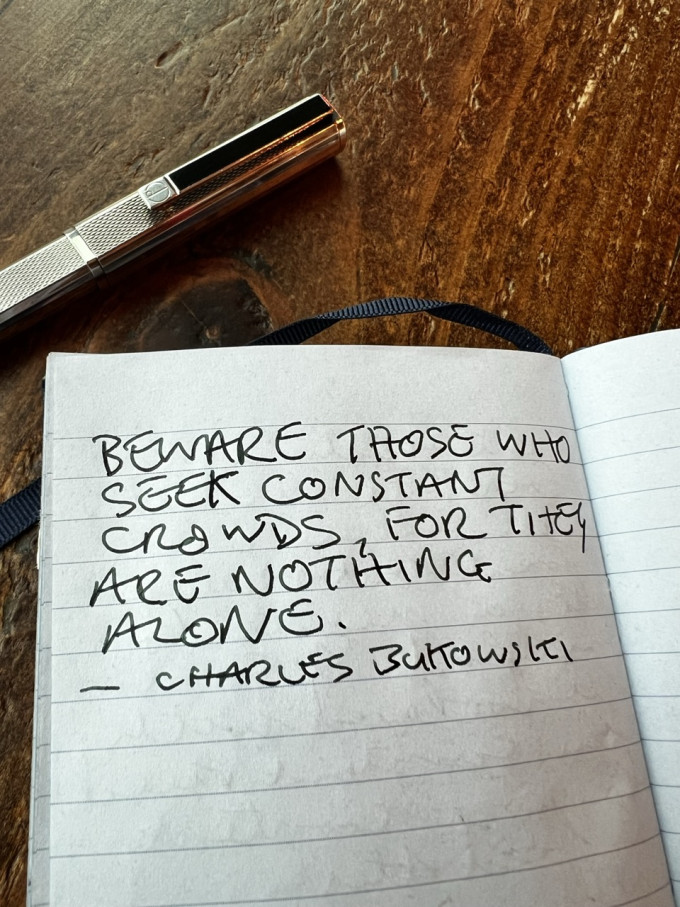 BEWARE THOSE WHO
SEEK CONSTANT
CROWDS, FOR THEY
ARE NOTHING
ALONE.
— CHARLES BUKOWSKI